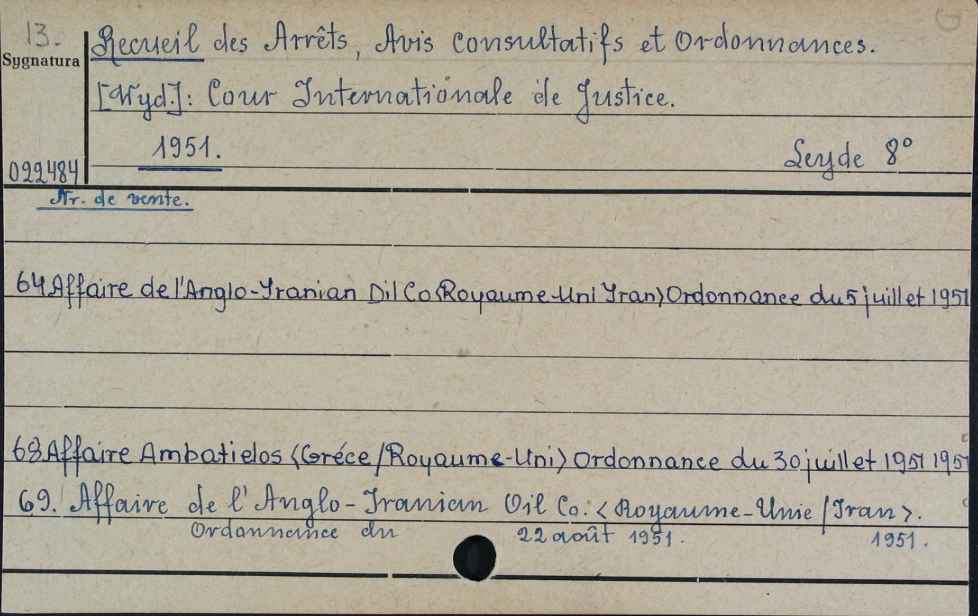 G
13.
Sygnatura
Recueil des Arrêts, Avis consultatifs et Ordonnances.
[Wyd.]: Cour Internationale de Justice.
1951. Leyde 8°
022484
Nr. de vente.
64 Affaire de l'Anglo-Iranian Dil Co<Royaume-Uni Iran> Ordonnance du 5 juillet 1951
68 Affaire Ambatielos <Gréce/Royaume-Uni> Ordonnance du 30 juillet 1951 1951
69. Affaire de l'Anglo-Iranian Oil Co. <Royaume-Unie/Iran>.
Ordonnance du 22 août 1951. 1951.